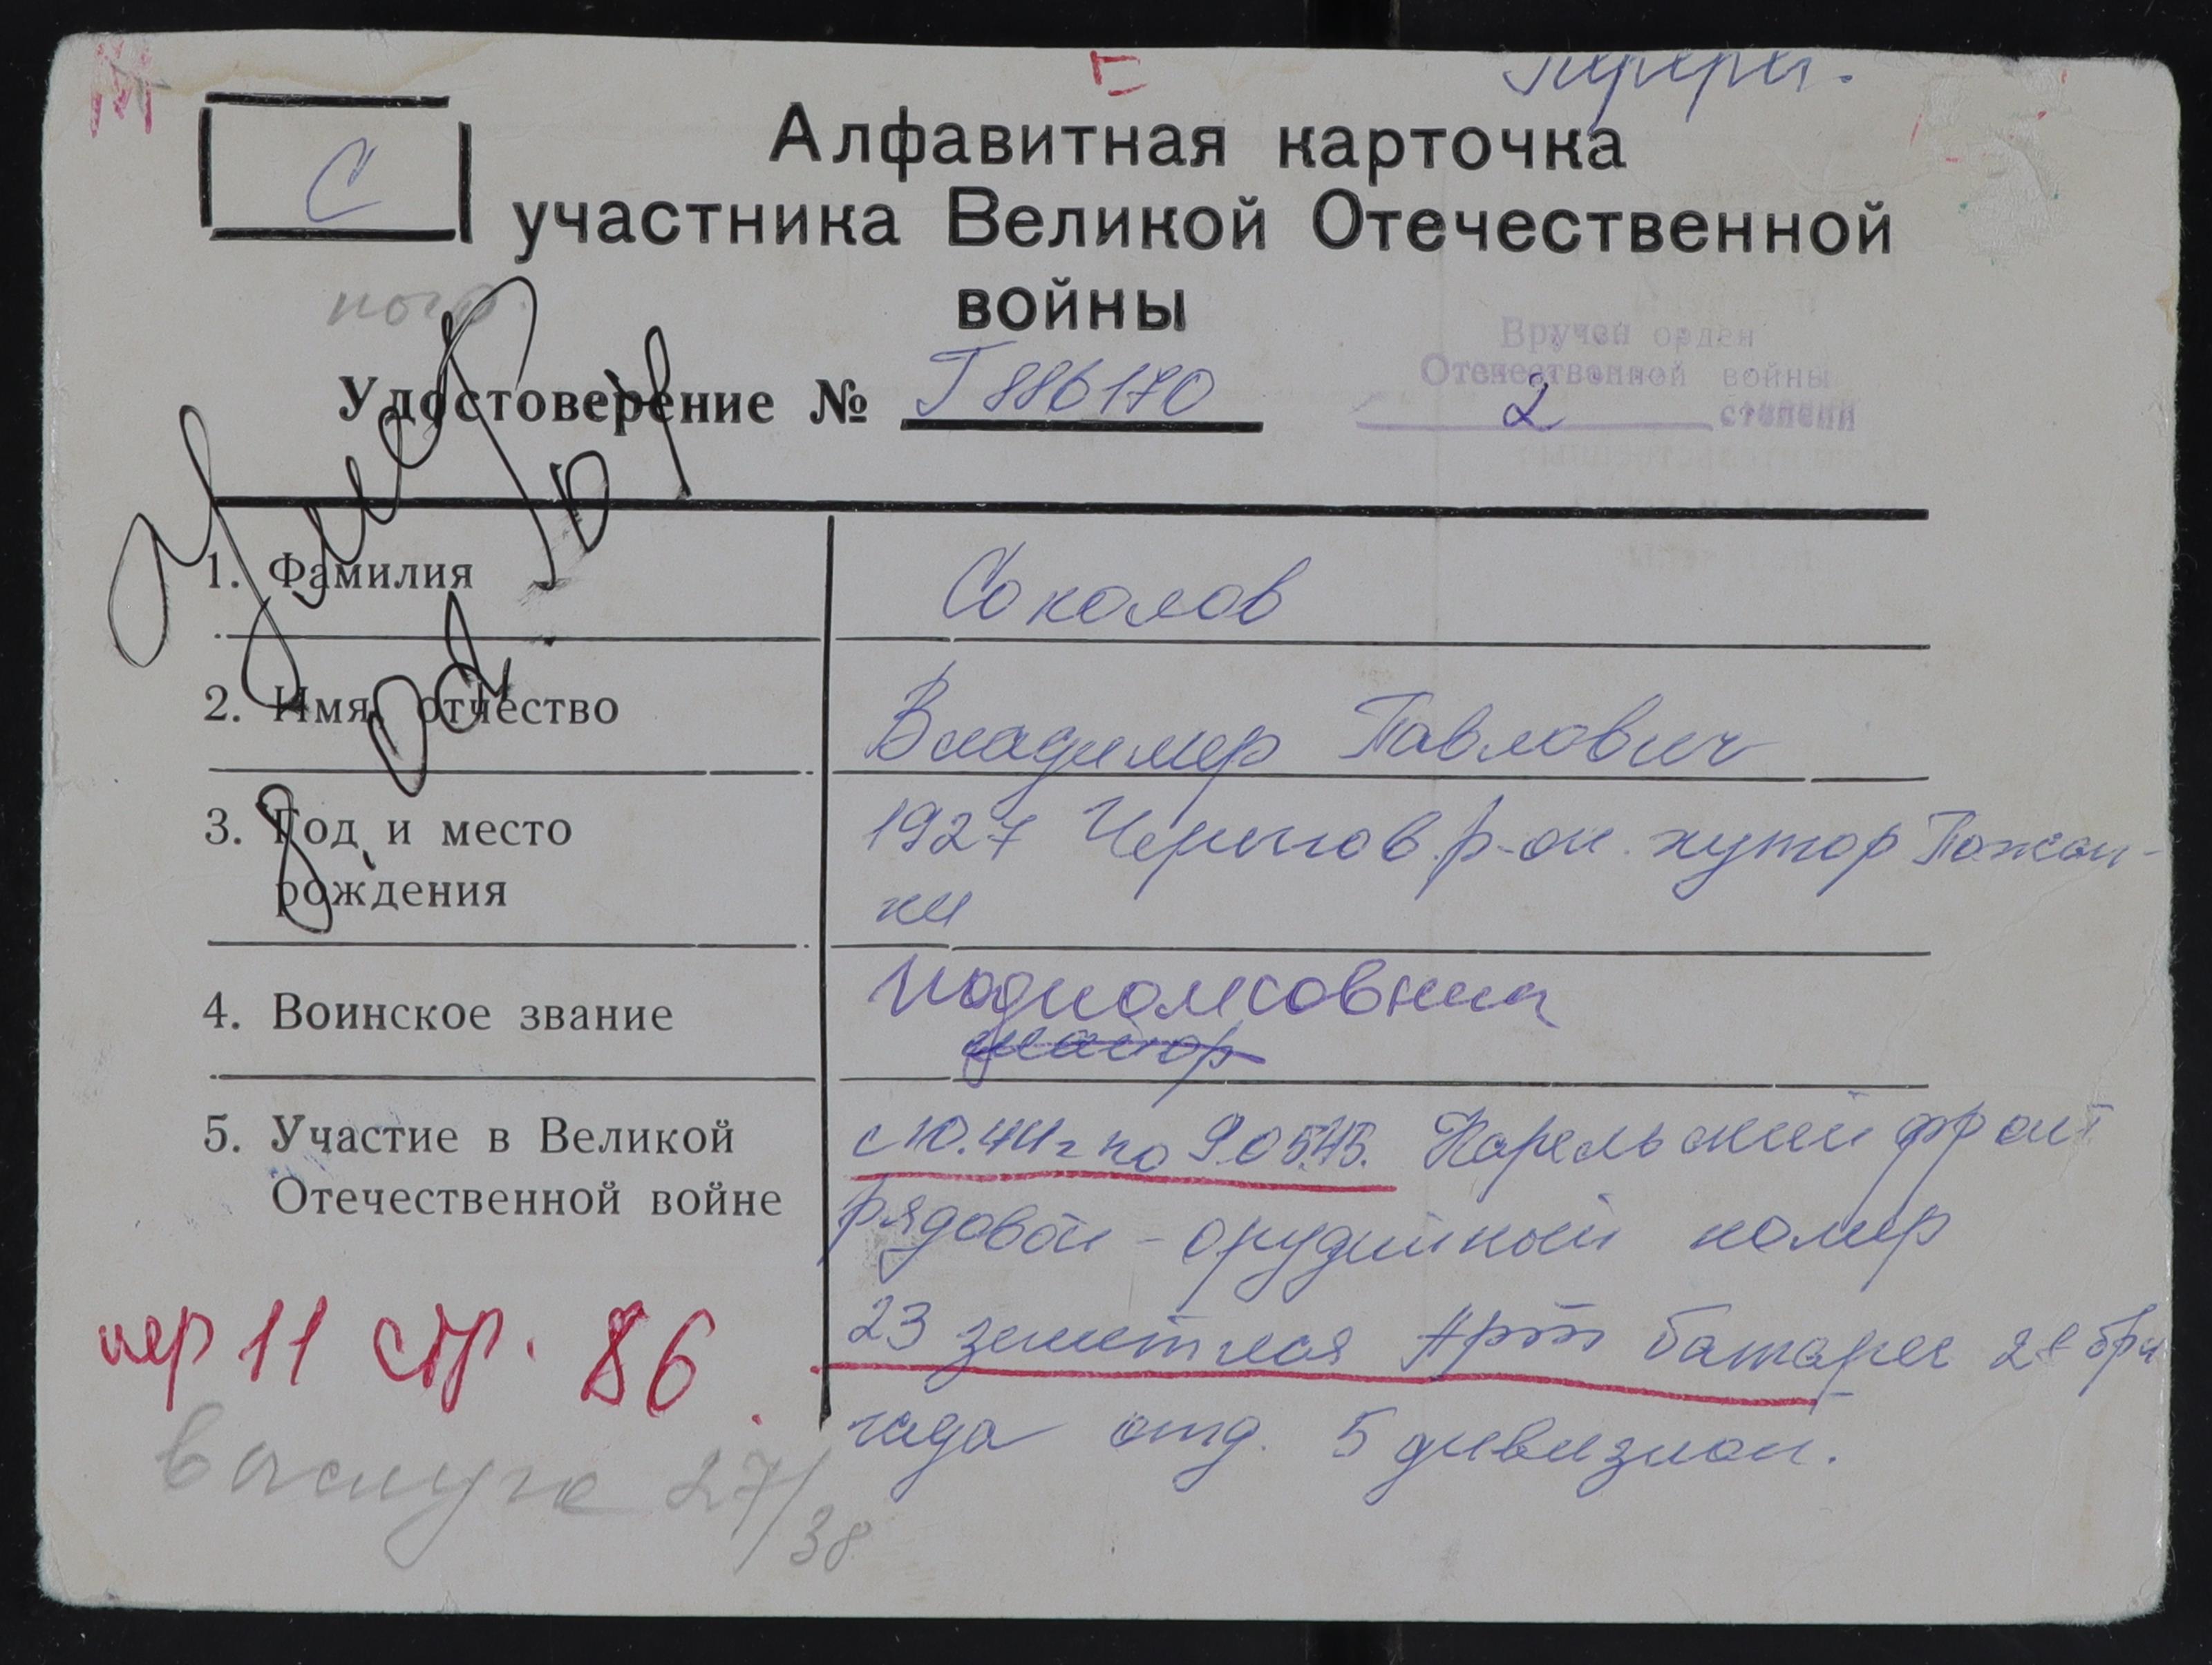 С
Алфавитная карточка
участника Великой Отечественной
войны
Вручен орден
Отечественной войны
2 степени
Удостоверение № Г 886170
Умер
1. Фамилия Соколов
2. Имя, отчество Владимир Павлович
3. Год и место 1927 р-он. хутор
рождения ки
4. Воинское звание подполковник
майор
5. Участие в Великой с 10.44г по 9.05.45. Карельский фронт
Отечественной войне рядовой - орудийный номер
пер 11 стр. 86. 23 зенитная Арт батарея бри
гада отд. 5 дивизион.
выслуга 27/38